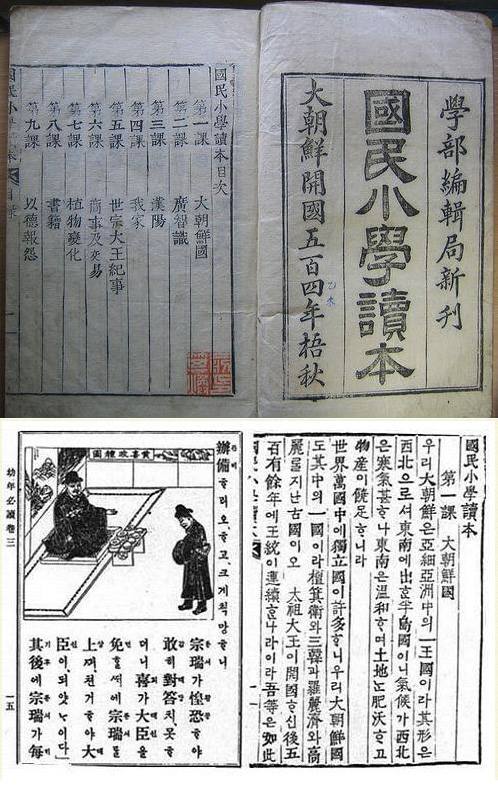 學部編輯局新刊
國民小學讀本
大朝鮮開國五百四年梧秋
乙未
國民小學讀本目次
第一課 大朝鮮國
第二課 廣智識
第三課 漢陽
第四課 我家
第五課 世宗大王紀事
第六課 商事及交易
第七課 植物變化
第八課 書籍
第九課 以德報怨
國民小學讀本
第一課 大朝鮮國
우리大朝鮮은亞細亞洲中의一王國이라其形은
西北으로셔東南에出ᄒᆞᆫ半島國이니氣候가西北
은寒氣甚ᄒᆞ나東南은溫和ᄒᆞ며土地ᄂᆞᆫ肥沃ᄒᆞ고
物産이饒足ᄒᆞ니라
世界萬國中에獨立國이許多ᄒᆞ니우리大朝鮮國
도其中의一國이라檀箕衛와三韓과羅麗濟와高
麗를지난古國이오 太祖大王이開國ᄒᆞ신後五
百有餘年에王統이連續ᄒᆞᆫ나라이라吾等은如此
辦備ᄒᆞ리오,ᄒᆞ고,크게ᄎᆡᆨ망ᄒᆞ니
宗瑞가惶恐ᄒᆞ야
敢히對答치못ᄒᆞ
더니喜가大臣을
免ᄒᆞᆯᄯᅢ에宗瑞를
上ᄭᅴ쳔거ᄒᆞ야大
臣이,되얏ᄂᆞ이다
其後에宗瑞가每
幼年必讀卷三
一五